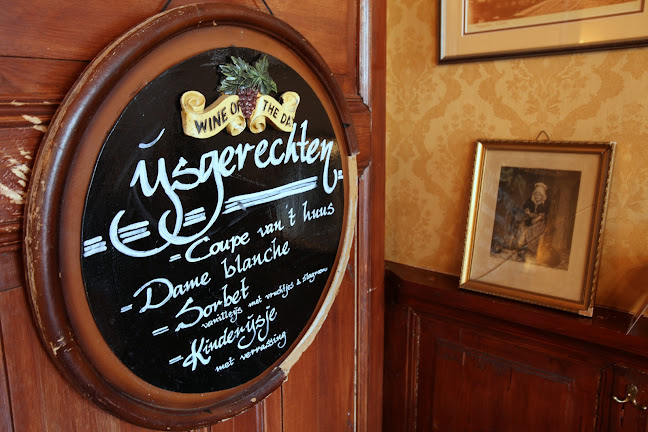 WINE OF THE DAY
ijsgerechten
- Coupe van 't huus
- Dame blanche
- Sorbet
vanilleijs met vruchtjes & slagroom
- Kinderijsje
met verrassing